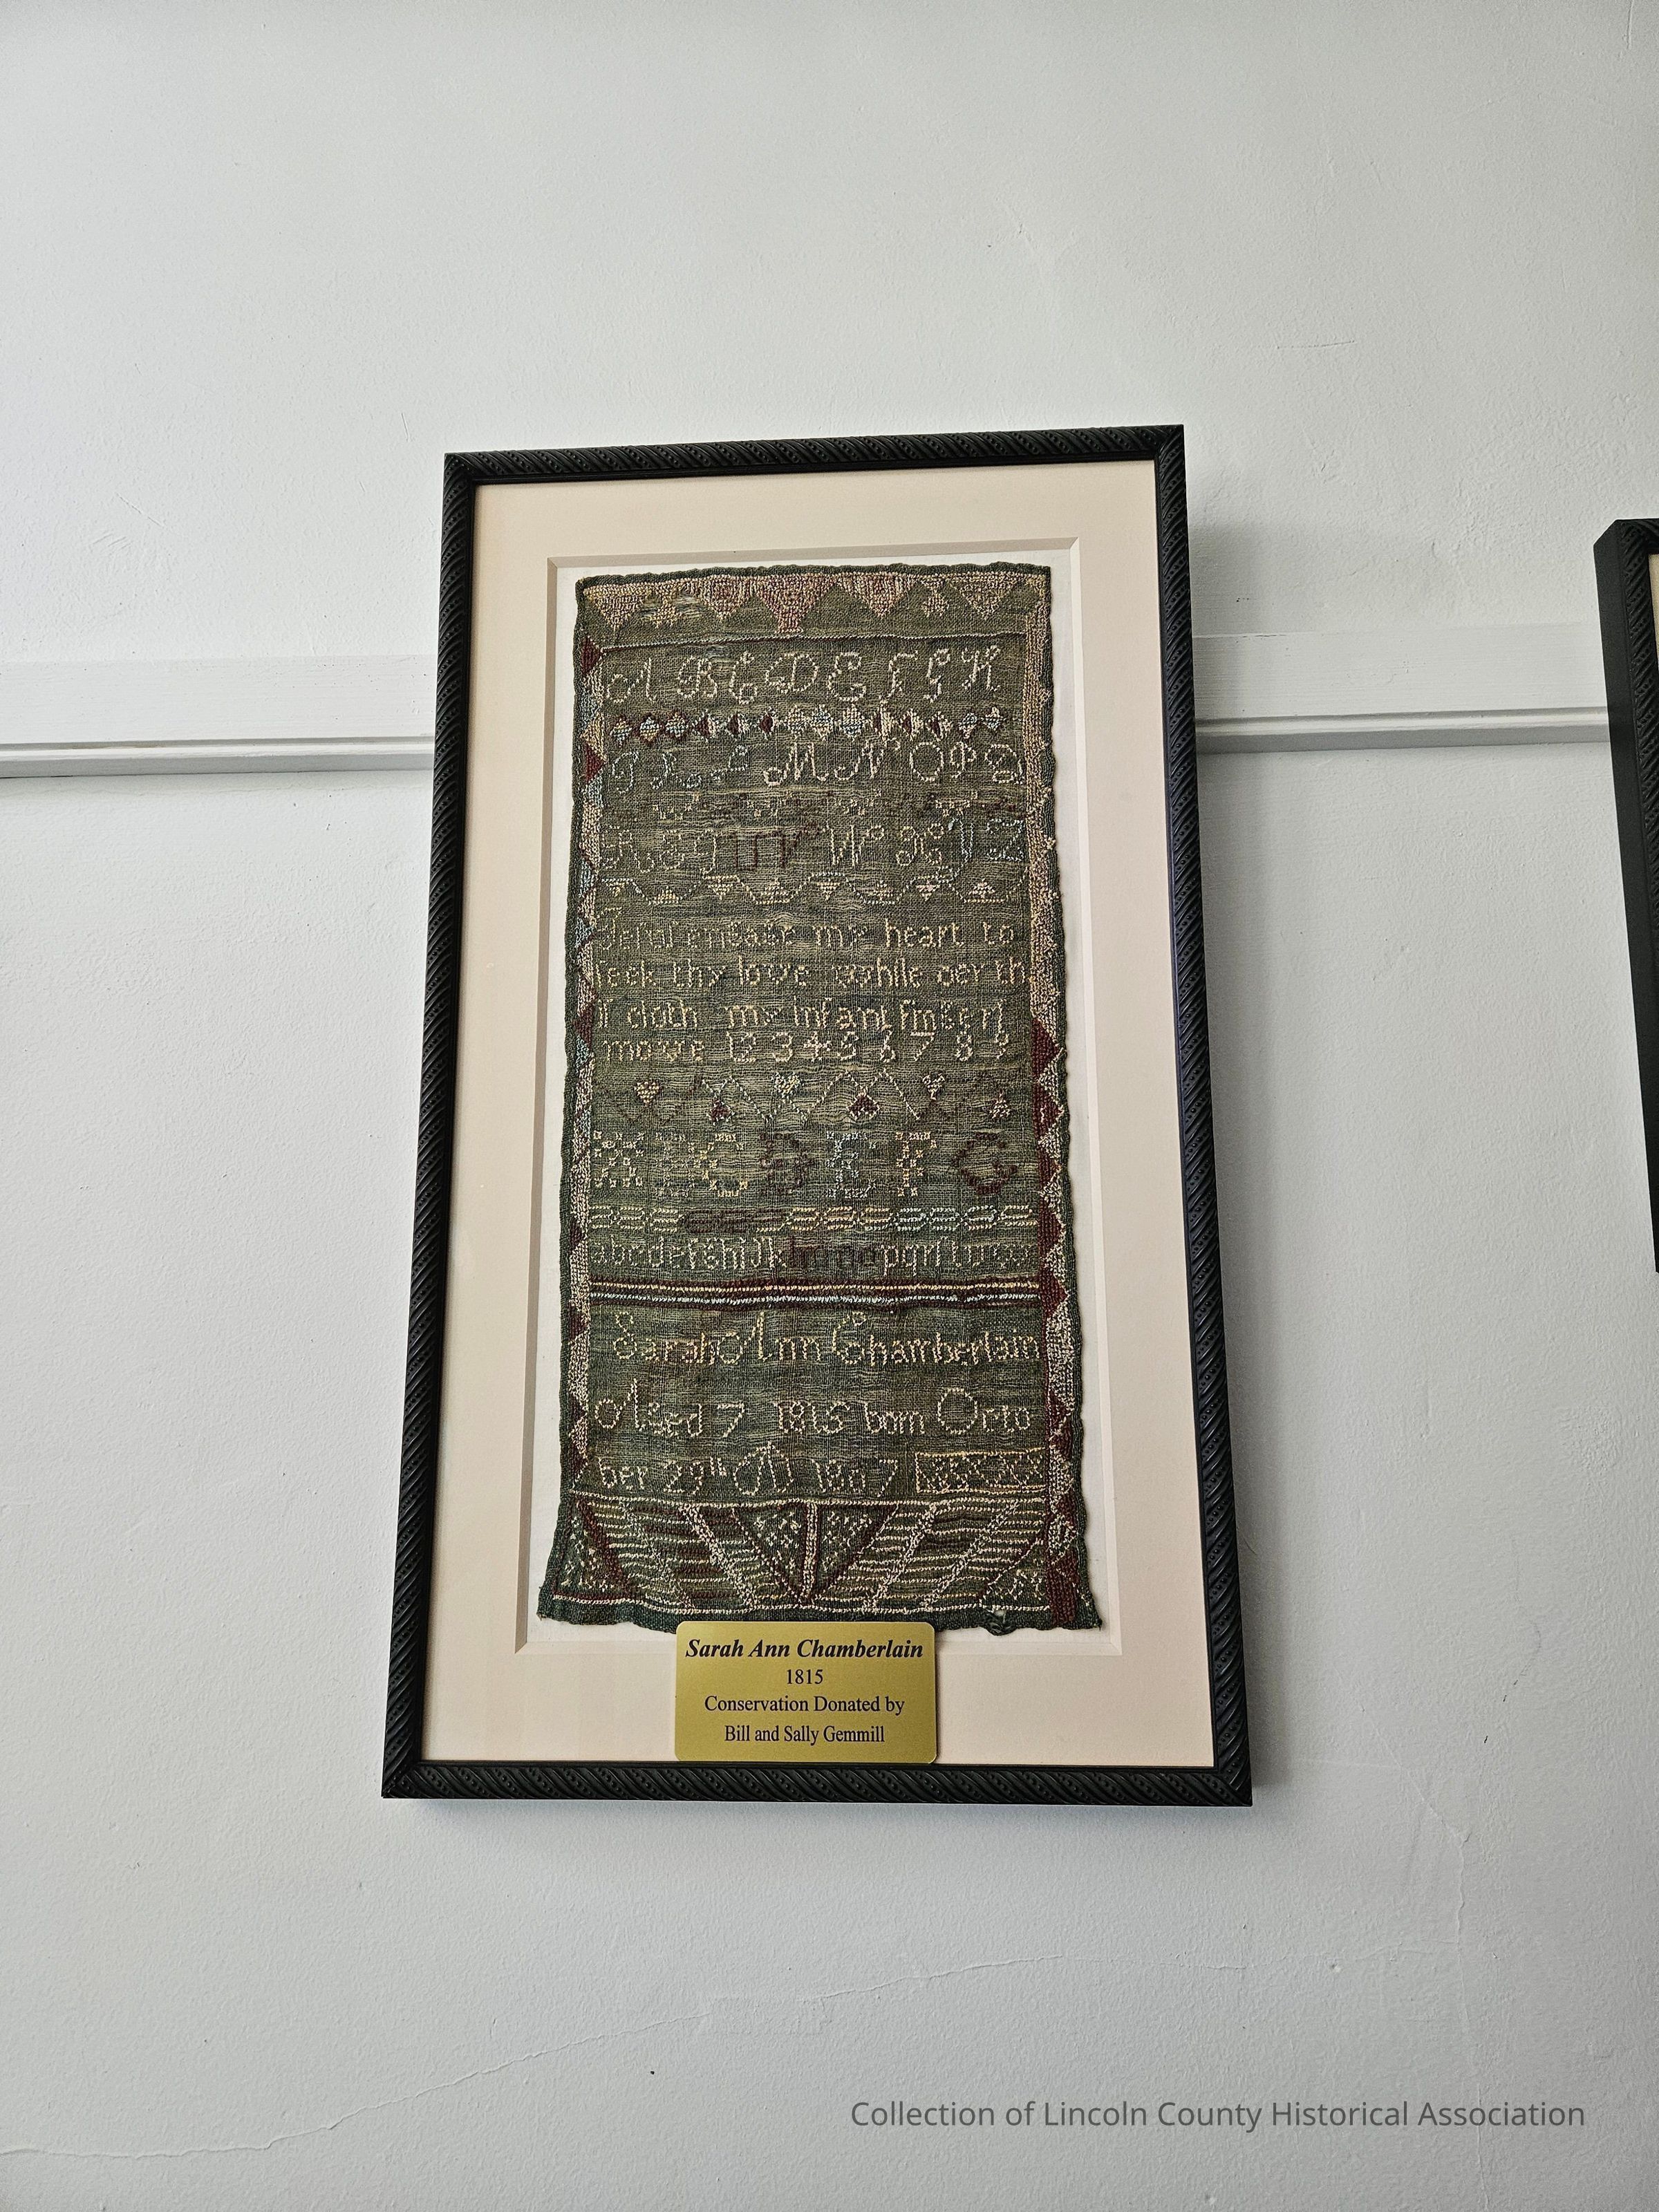 A B C D E F G H
I L M N O P Q
R S T U V W X Y Z
Jesus engage my heart to
seek thy love while oer th
if cloth my infant fingers
move 1 2 3 4 5 6 7 8 9
A B C D E F G
abcdefghijklmnopqrstuvw
Sarah Ann Chamberlain
Aged 7 1815 born Octo
ber 29th AD 1807
Sarah Ann Chamberlain
1815
Conservation Donated by
Bill and Sally Gemmill
Collection of Lincoln County Historical Association